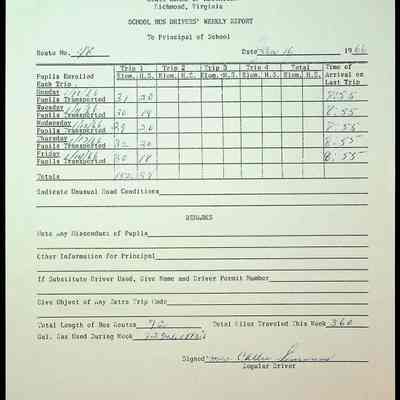 Richmond, Virginia
SCHOOL BUS DRIVERS' WEEKLY REPORT
To Principal of School
Route No. 48 Date Dec 16 1966
Trip 1 Trip 2 Trip 3 Trip 4 Total Time of
Pupils Enrolled Elem. H.S. Elem. H.S. Elem. H.S. Elem. H.S. Elem. H.S. Arrival on
Each Trip Last Trip
Monday
Pupils Transported 31 20 8:55
Tuesday
Pupils Transported 30 19 8:55
Wednesday
Pupils Transported 20 8:55
Thursday
Pupils Transported 32 20 8:55
Friday
Pupils Transported 30 18 8:55
Totals 152 97
Indicate Unusual Road Conditions
REMARKS
Note Any Misconduct of Pupils
Other Information for Principal
If Substitute Driver Used, Give Name and Driver Permit Number
Give Object of Any Extra Trip Made
Total Length of Bus Routes 72 Total Miles Traveled This Week 360
Gal. Gas Used During Week
Signed Mrs. Callie
Regular Driver